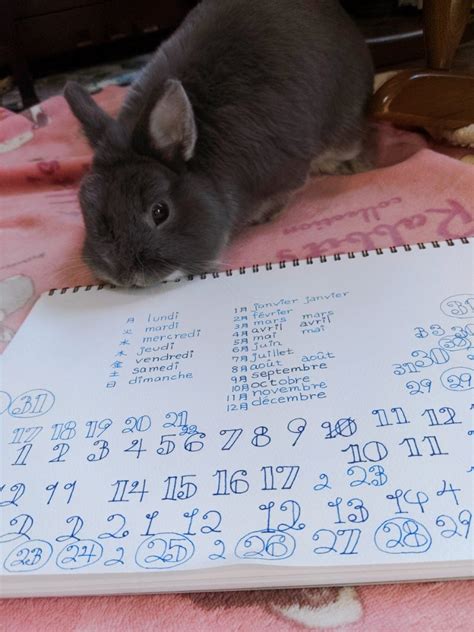 collection
月 lundi
火 mardi
水 mercredi
木 jeudi
金 vendredi
土 samedi
日 dimanche
1月 janvier janvier
2月 février
3月 mars mars
4月 avril avril
5月 mai mai
6月 juin
7月 juillet
8月 août août
9月 septembre
10月 octobre
11月 novembre
12月 décembre
31 30
29 29
17 18 19 20 21
22
1 2 3 4 5 6 7 8 9 10 11 12
10 11
14 15 16 17 2 23
2 2 1 12 2 12 13 14 4
23 24 2 25 2 26 27 28 29